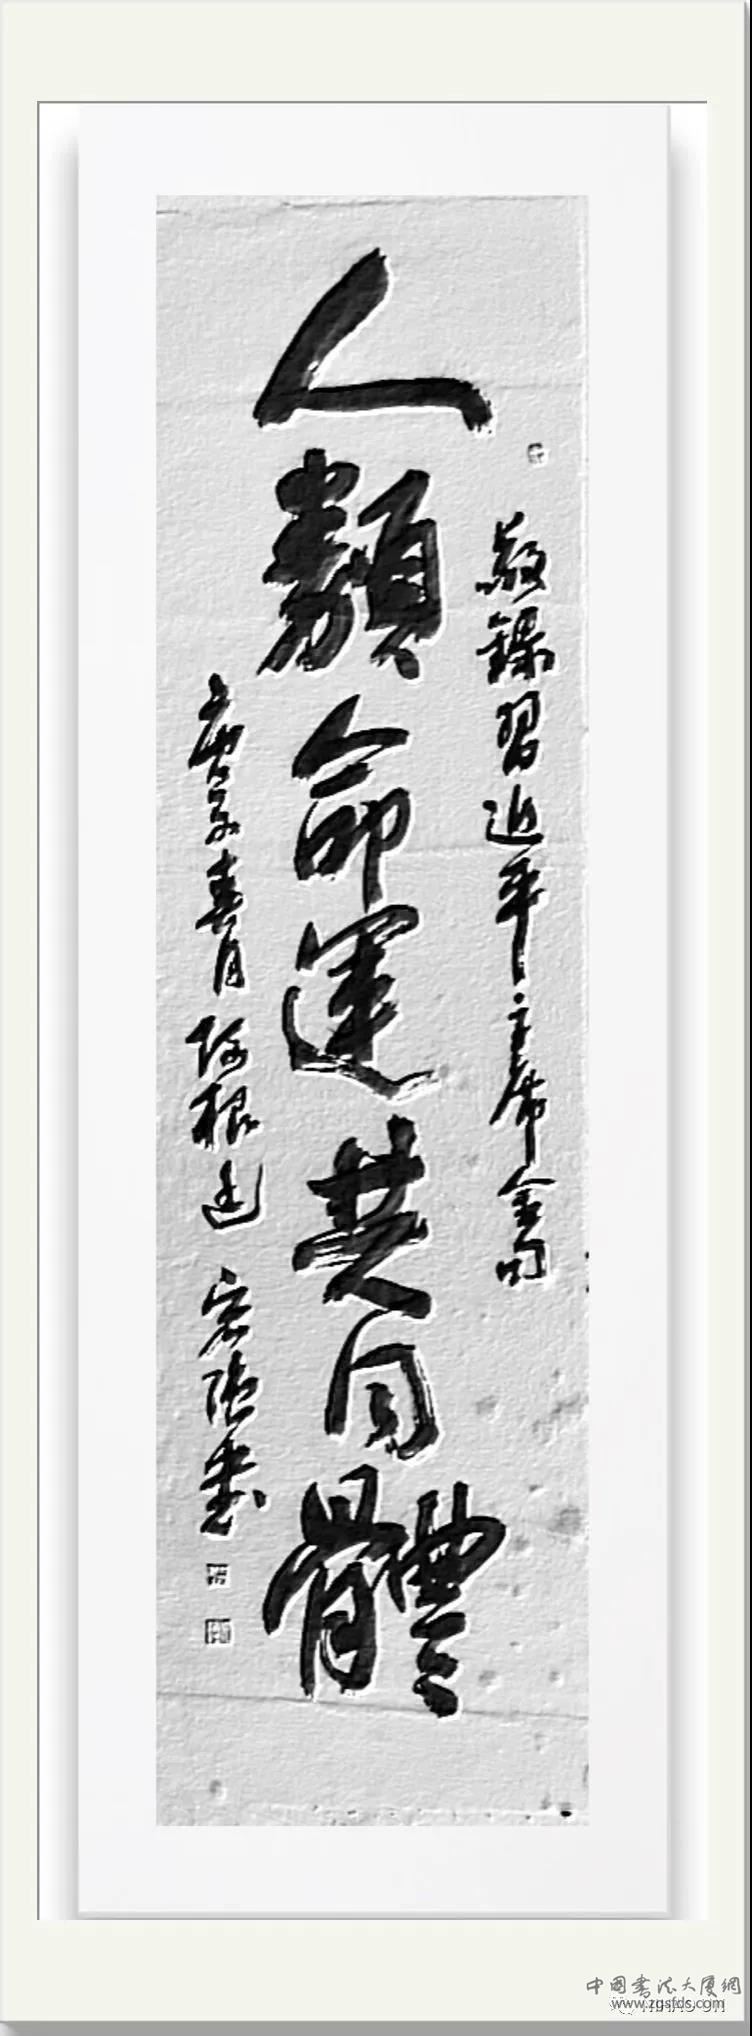 敬錄習近平主席金句
人類命運共同體
庚子春月阿根廷
中國書法大廈網
www.zgsfds.com